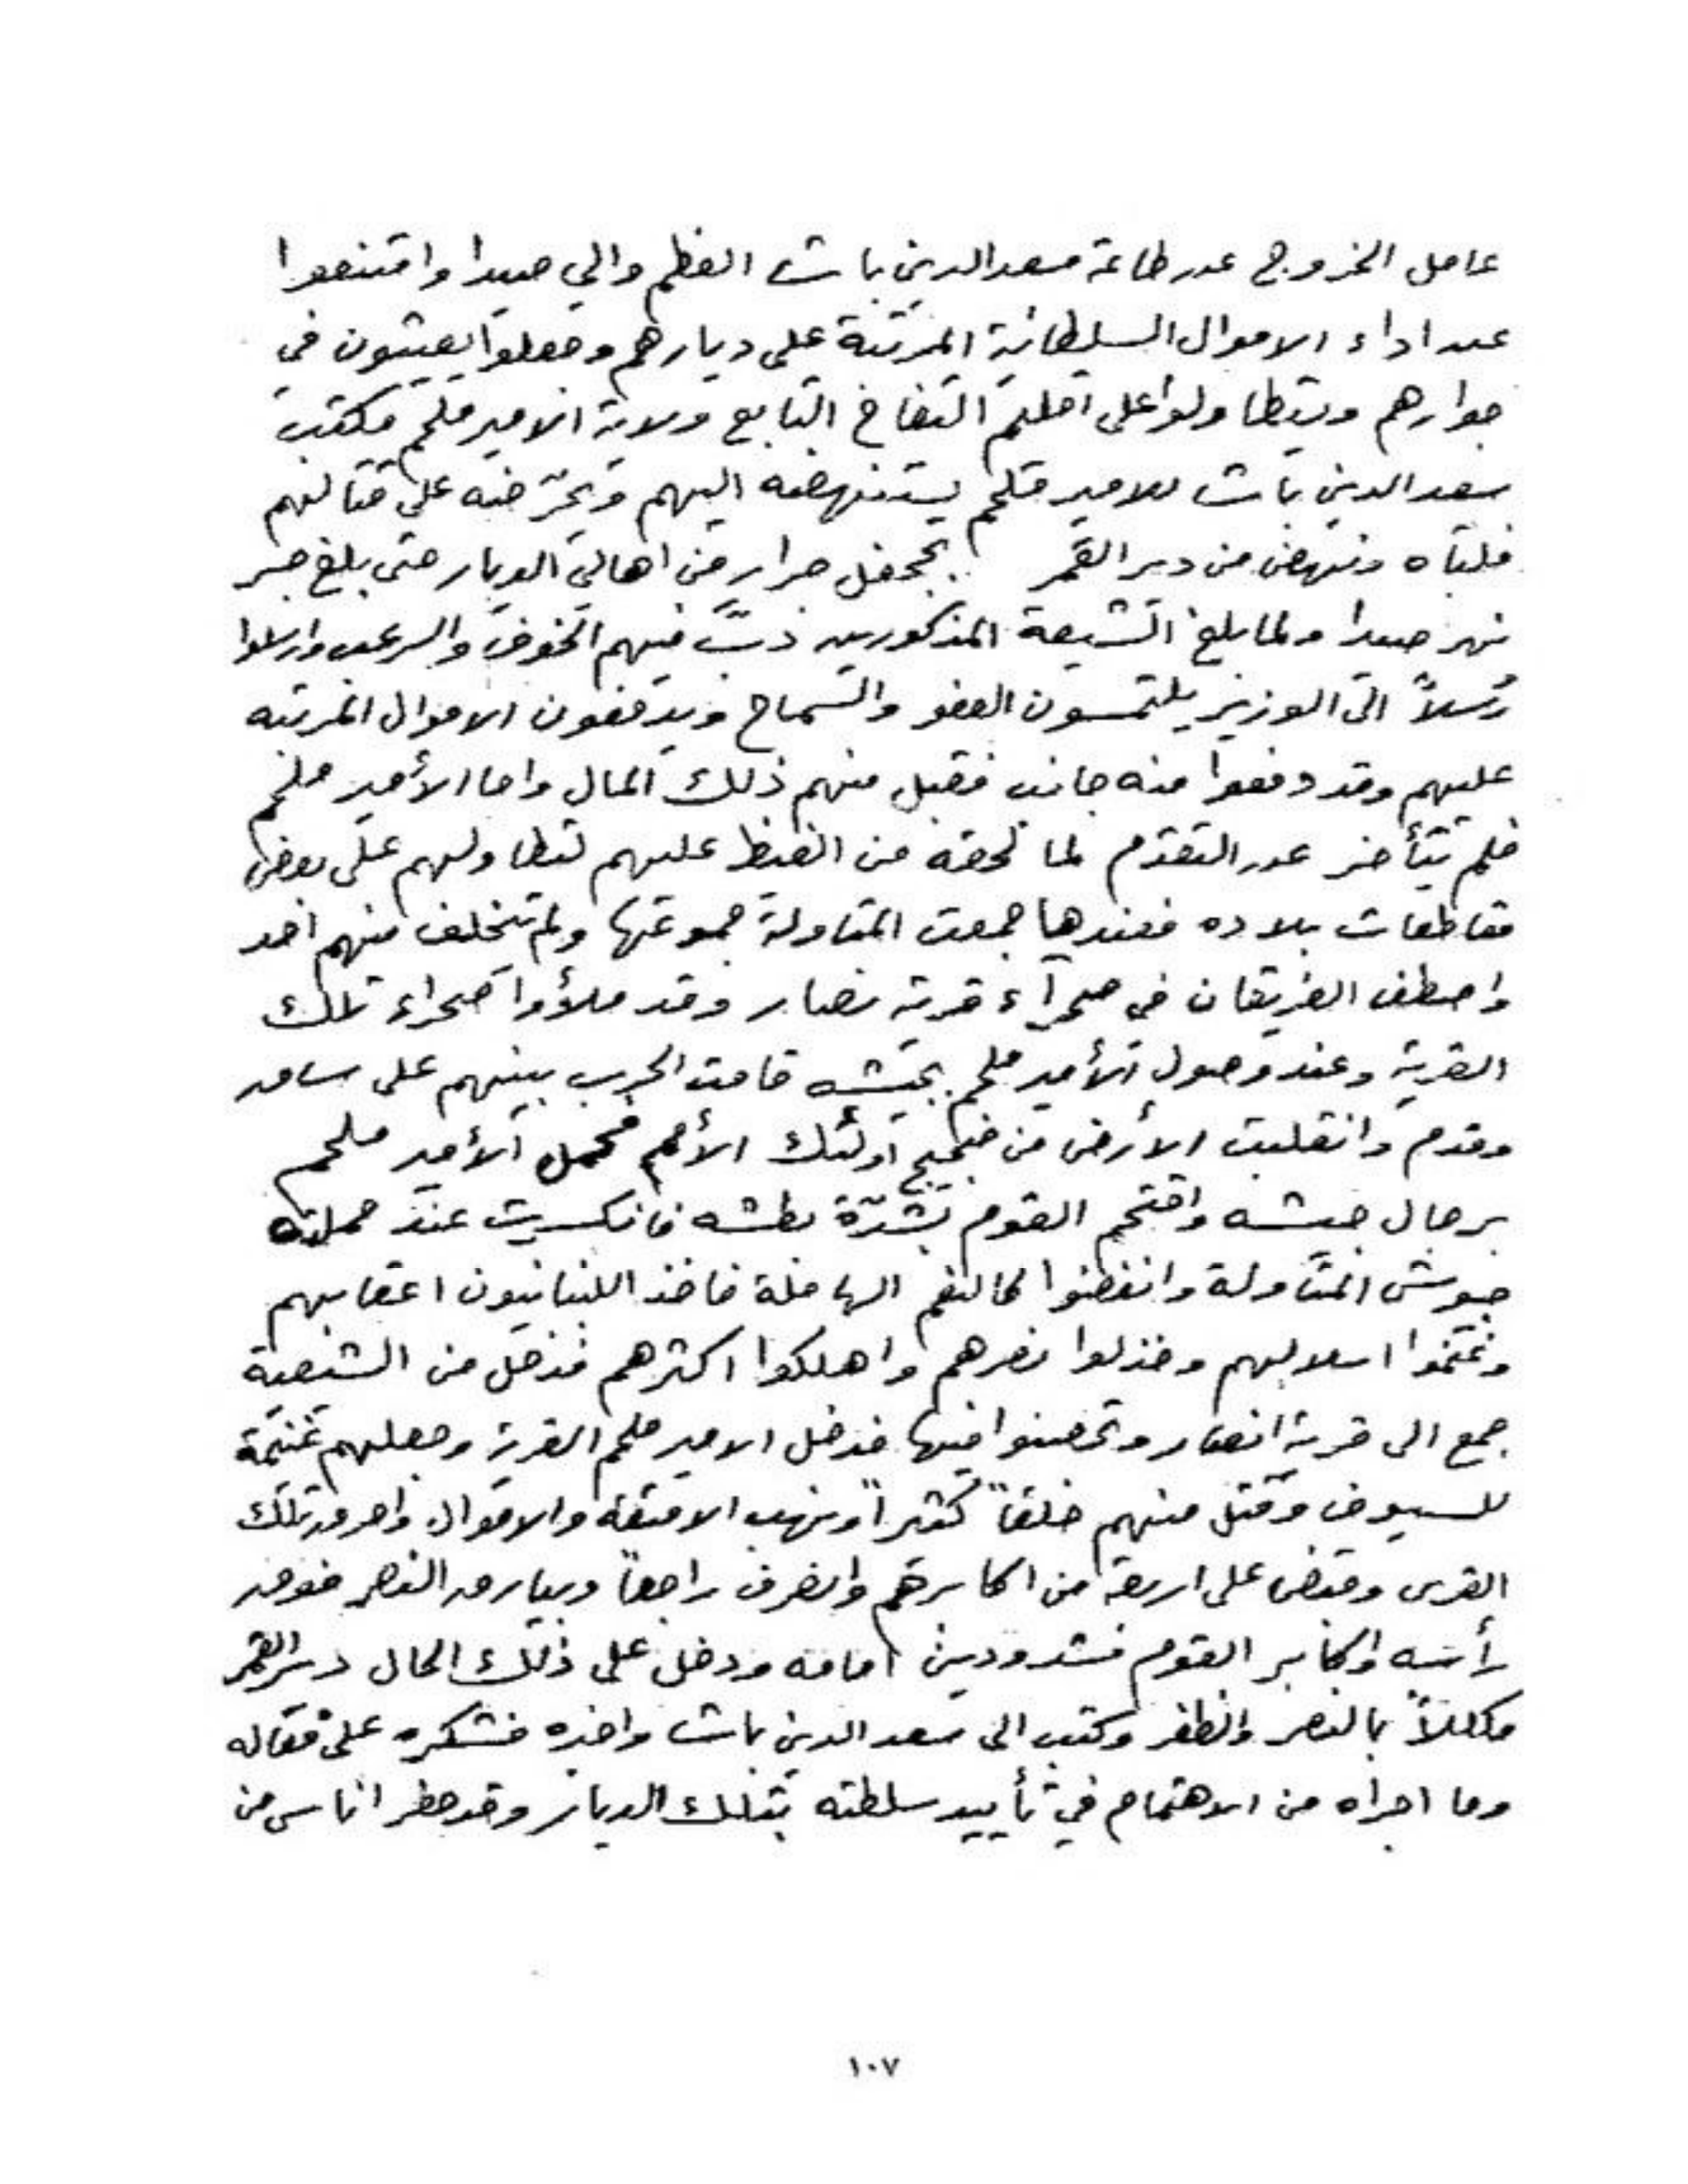 عامل الخروج عن طاعة سعد الدين باشا العظم والي صيدا وامتنعوا
عن اداء الاموال السلطانية المرتبة على ديارهم وجعلوا يعيثون في
جوارهم ويتطاولوا على اقليم التفاح التابع ولاية الامير ملحم فكتب
سعد الدين باشا للامير ملحم يستنهضه اليهم ويحرّضه على قتالهم
فلباه ونهض من دير القمر بجحفل جرار من اهالي الديار حتى بلغ جسر
نهر صيدا ولما بلغ الشيعة المذكورين دبَّ فيهم الخوف والرعب وارسلوا
رُسلاً الى الوزير يلتمسون العفو والسماح ويدفعون الاموال المرتبه
عليهم وقد دفعوا منه جانب فقبل منهم ذلك المال واما الأمير ملحم
فلم يتأخر عن التقدم لما لحقه من الغيظ عليهم لتطاولهم على بعض
مقاطعات بلاده فعندها جمعت المتاولة جموعها ولم يتخلف منهم احد
واصطف الفريقان في صحرآء قرية نصار وقد ملأوا صحراء تلك
القرية وعند وصول الأمير ملحم بجيشه قامت الحرب بينهم على ساق
وقدم وانقلبت الأرض من ضجيج اولئك الأمم فحمل الأمير ملحم
برجال جيشه واقتحم القوم بشدّة بطشه فانكسرت عند حملته
جيوش المتاولة وانفضوا كالنعم الجافلة فاخذ اللبنانيون اعقابهم
وغنموا اسلابهم وخذلوا نصرهم واهلكوا اكثرهم فدخل من الشيعية
جمع الى قرية انصار وتحصنوا فيها فدخل الامير ملحم القرية وجعلهم غنيمة
للسيوف وقتل منهم خلقاً كثيراً ونهب الامتعة والاموال واحرق تلك
القرى وقبض على اربعة من اكابرهم وانصرف راجعاً وبيارق النصر فوق
رأسه واكابر القوم مشدودين امامه ودخل على ذلك الحال دير القمر
مكللاً بالنصر والظفر وكتب الى سعد الدين باشا واخبره فشكره على فعاله
وما اجراه من الاهتمام في تأييد سلطته بتلك الديار وقد حضر اناس من
١٠٧